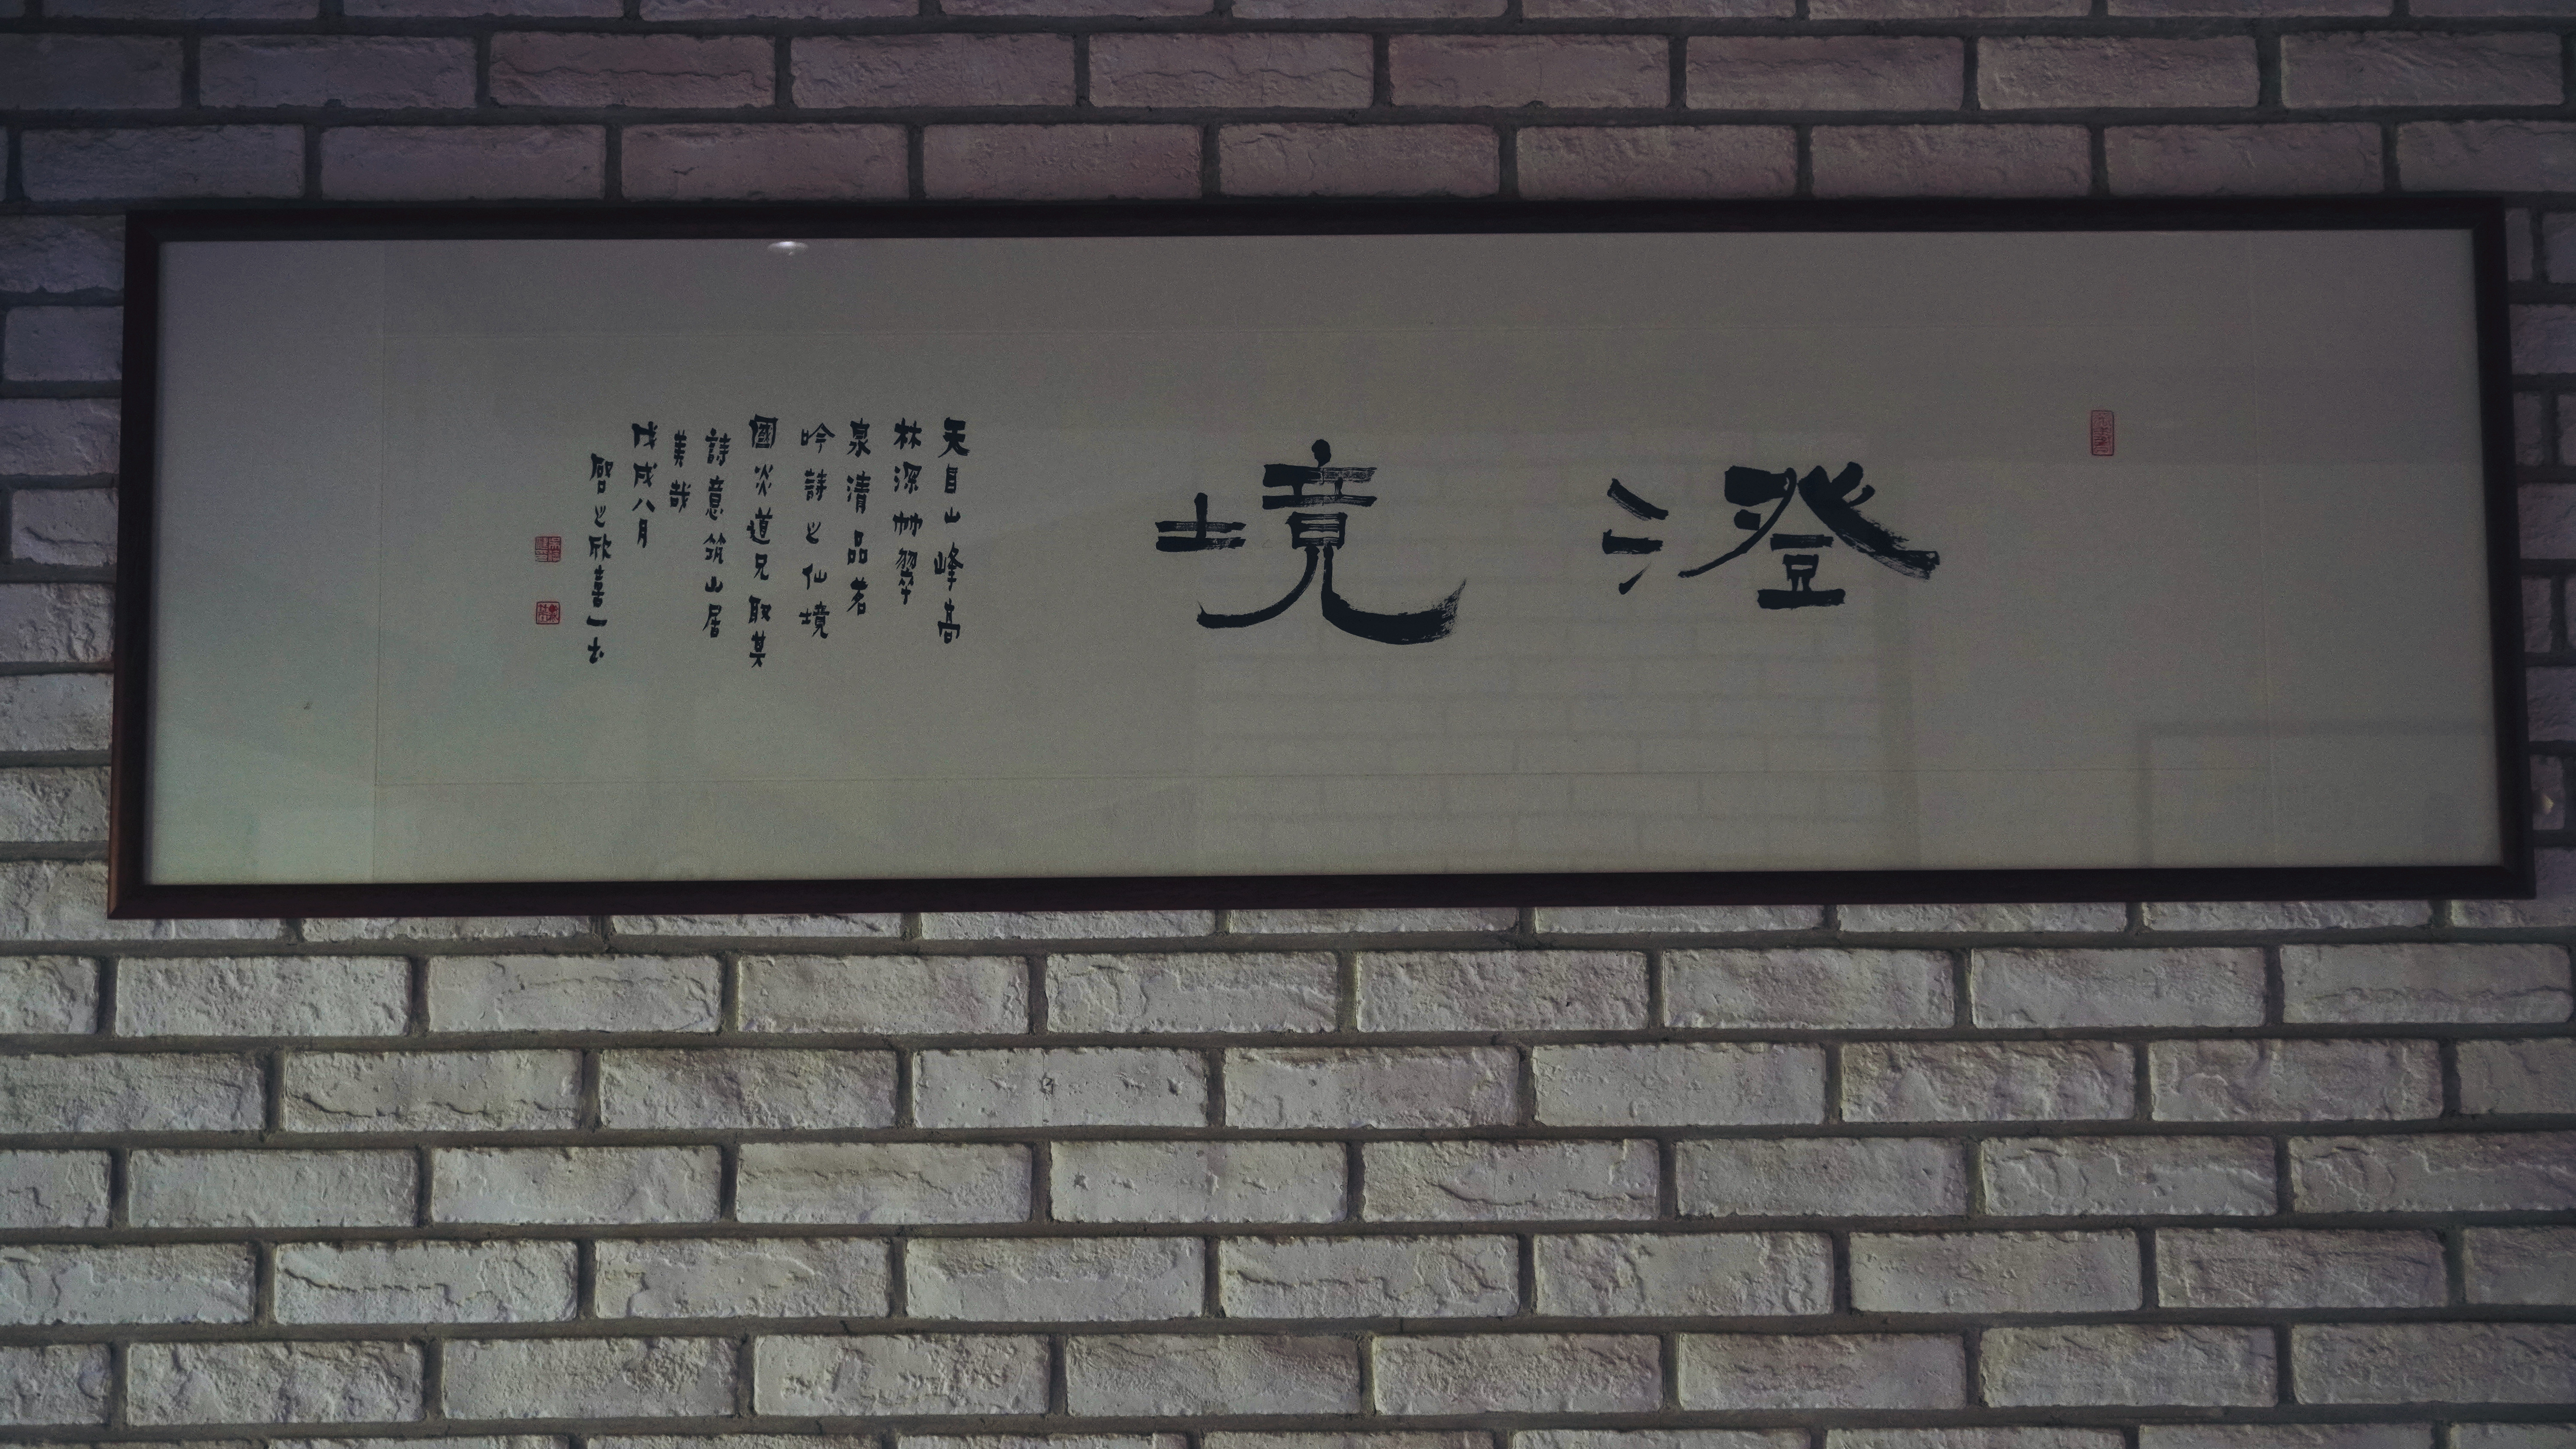 澄境
天目山峰高
林深竹翠
泉清品茗
吟詩之仙境
國炎道兄取其
詩意筑山居
美哉
戊戌八月
啓之欣喜一書